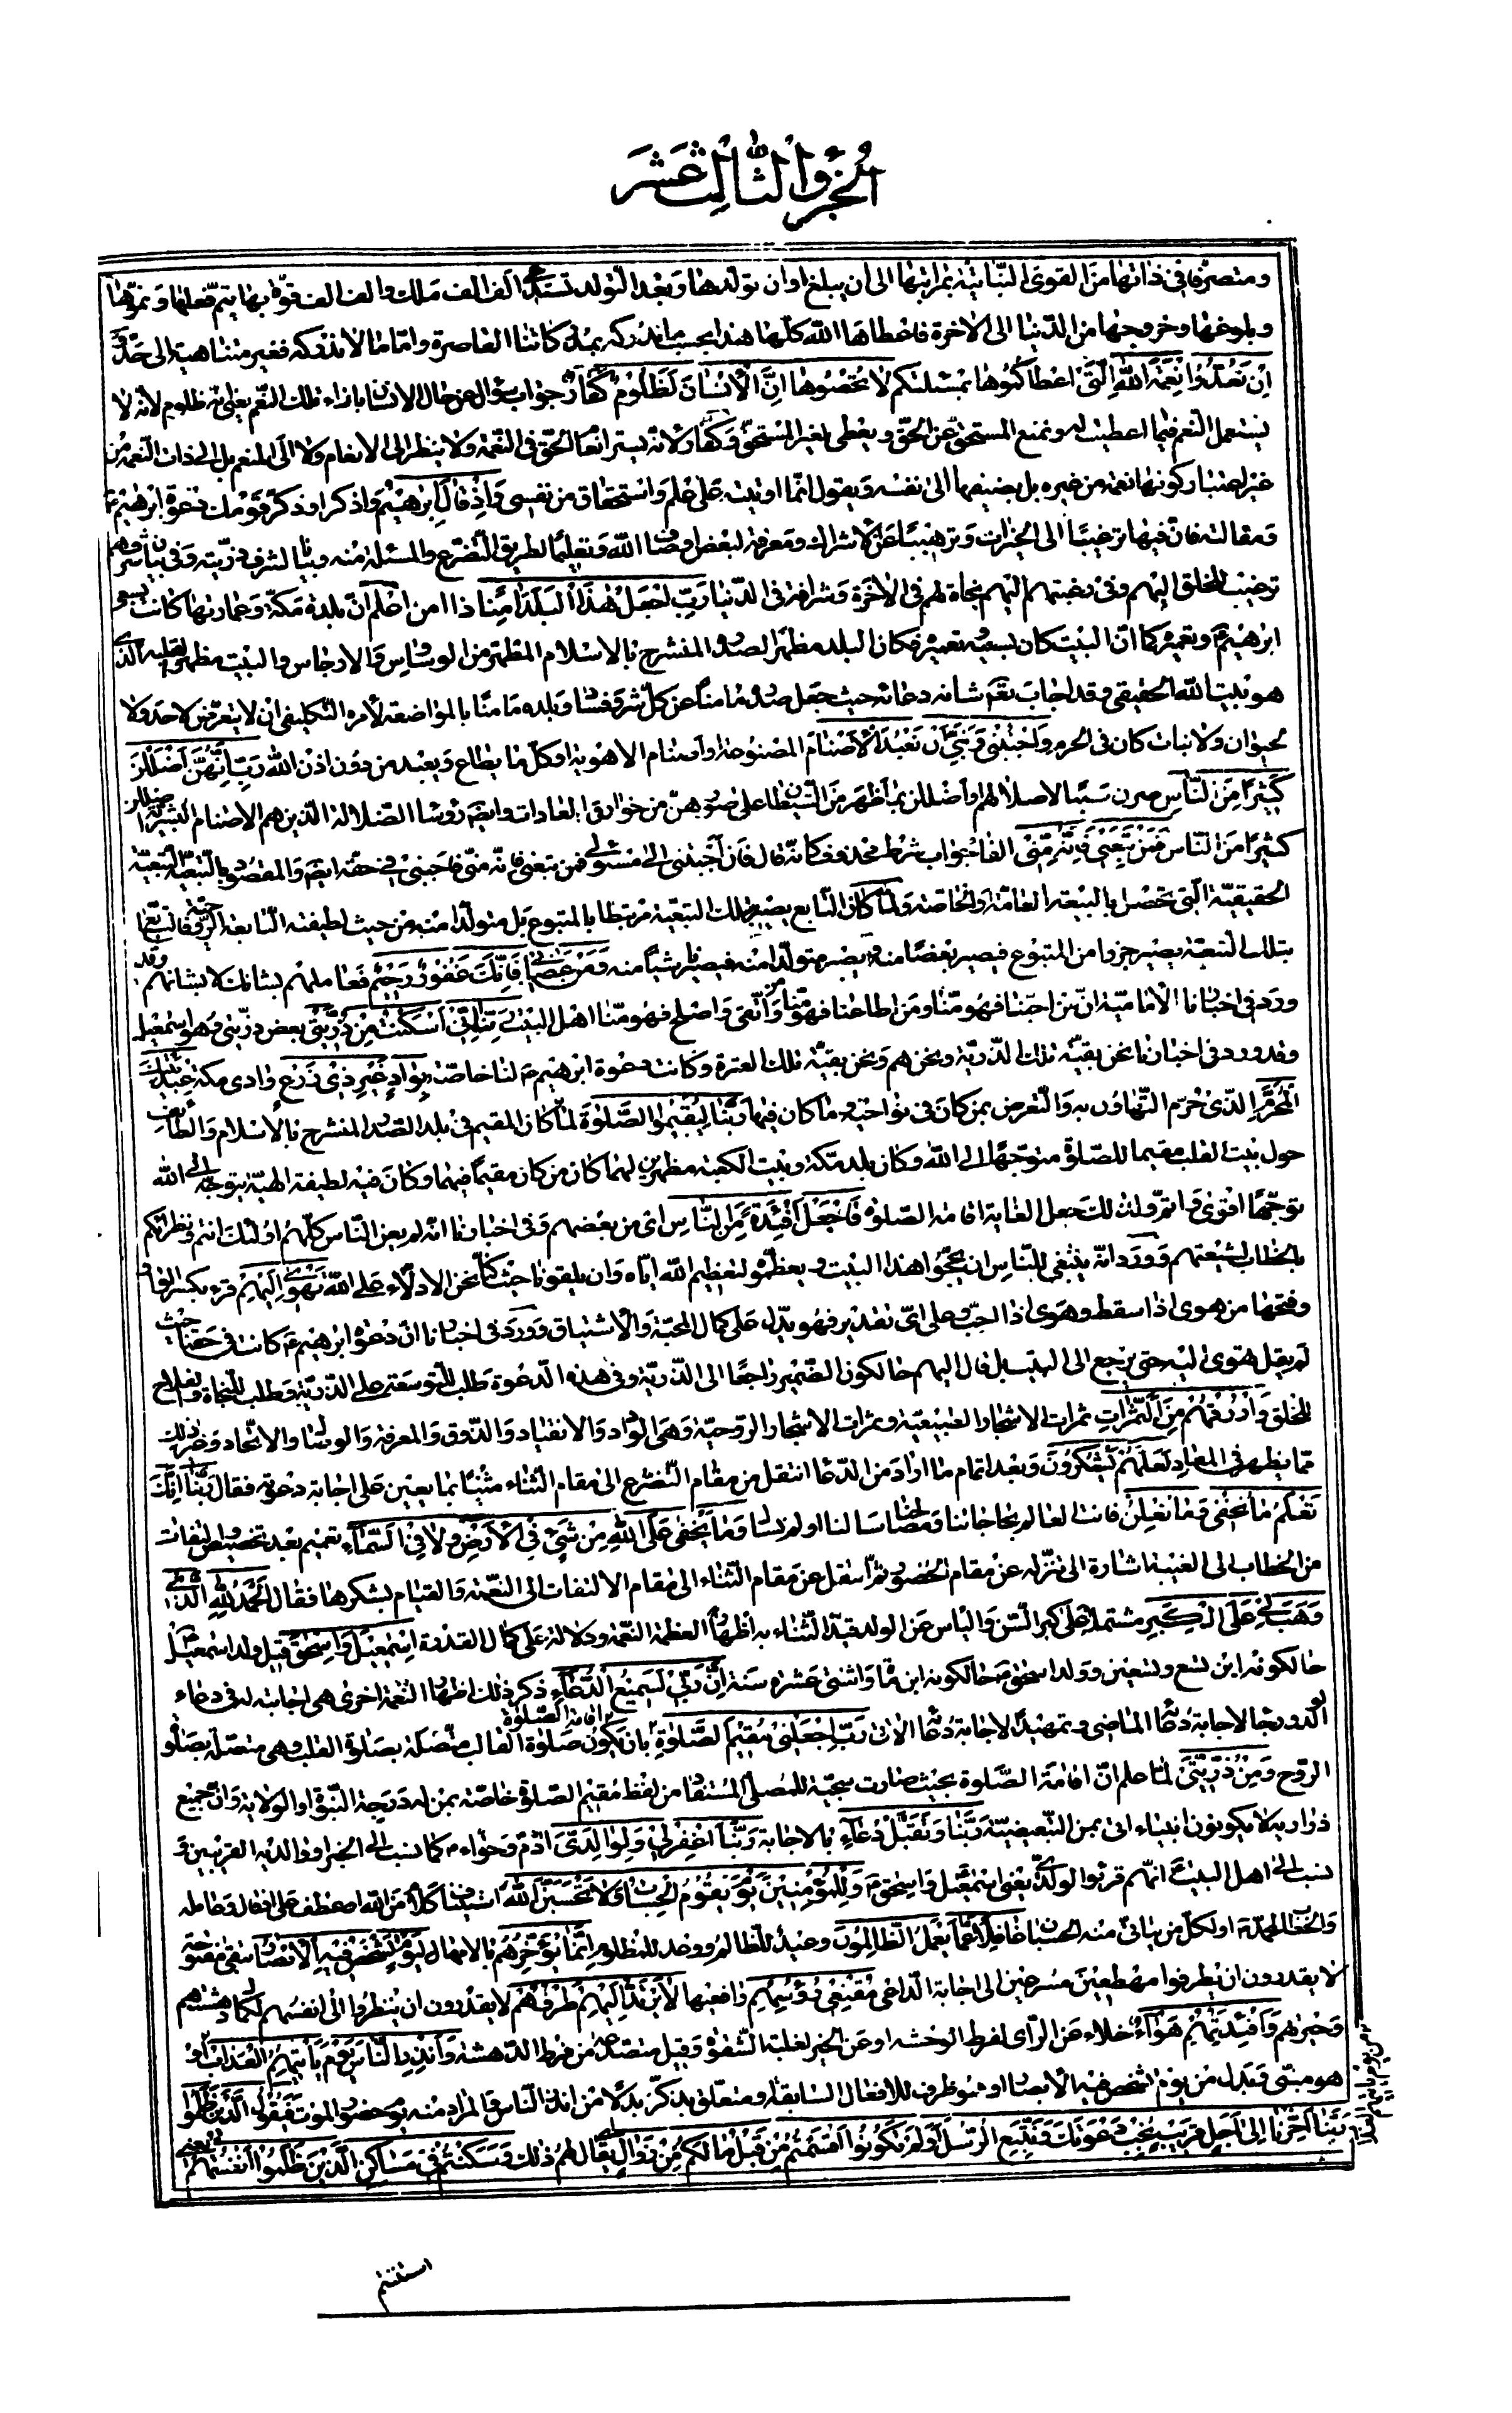 الجزء الثالث عشر
ومتصرّفا فى ذاتها من القوى النّباتيّة بمراتبها الى ان يبلغ اوان تولّدها وبعد التّولّد تستمدّ الف الف ملك والف الف قوّة بها يتمّ فعلها ونموّها
وبلوغها وخروجها من الدّنيا الى الاخرة فاعطاها الله كلّها هذا بحسب ما ندركه بمداركاتنا القاصرة وامّا ما لا ندركه فغير متناهية الى حدّ و
اِنْ تَعُدُّوا نِعْمَةَ اللهِ الّتى اعطاكموها بمسئلتكم لا تُحْصُوها اِنَّ الْاِنْسانَ لَظَلُومٌ كَفّارٌ جواب سؤال عن حال الانسان بازاء تلك النّعم يعنى انّه ظلوم لانّه لا
يستعمل النّعم فيما اعطيت له ويمنع المستحقّ عن الحقّ ويعطى لغير المستحقّ وكفّار لانّه يستر انعام الحقّ فى النّعمة ولا ينظر الى الانعام ولا الى المنعم بل الى ذات النّعمة من
غير اعتبار كونها نعمة من غيره بل يضيفها الى نفسه ويقول انّما اوتيته على علم واستحقاق من نفسى وَاِذْ قالَ اِبْرهيمُ واذكر او ذكّر قومك دعوة ابرهيم ع
ومقالته فانّ فيها ترغيبا الى الخيرات وترهيبا عن الاشراك ومعرفة لبعض اوصاف الله وتعليما لطريق التّضرّع والمسئلة منه وبيانا لشرف ذرّيّته وفى بيان شرفهم
ترغيب للخلق اليهم وفى رغبتهم اليهم نجاة لهم فى الاخرة وشرافة فى الدّنيا رَبِّ اجْعَلْ هذَا الْبَلَدَ آمِنًا ذا امن اعلم انّ بلدة مكّة وعمارتها كانت بسعى
ابرهيم ع وتعميره كما انّ البيت كان بسعيه وتعميره فكان البلد مظهرا لصدره المنشرح بالاسلام المطهّر من الوسواس والارجاس والبيت مظهرا لقلبه الّذى
هو بيت الله الحقيقى وقد اجاب تعالى شانه دعائه حيث جعل صدره مأمنا عن كلّ شرّ وفساد وبلده مامنا بالمواضعة لأمره التّكليفى ان لا يتعرّض لاحد ولا
لحيوان ولا نبات كان فى الحرم وَاجْنُبْنى وَبَنِىَّ اَنْ نَعْبُدَ الْاَصْنامَ المصنوعة او اصنام الاهوية او كلّ ما يطاع ويعبد من دون اذن الله رَبِّ اِنَّهُنَّ اَضْلَلْنَ
كَثيرًا مِنَ النّاسِ صرن سببا لاضلالهم او اضللن بما ظهر من الشّيطان على صورهنّ من خوارق العادات وايضا رؤساء الضّلالة الّذين هم الاصنام البشريّة اضللن
كثيرا من النّاس فَمَنْ تَبِعَنى فَاِنَّهُ مِنّى الفاء جواب شرط محذوف كانّه قال فان اجبتنى الى مسئولى فمن تبعنى فانّه منّى فاجبنى فى حقّه ايضا والمقصود بالتّبعيّة التّبعيّة
الحقيقيّة الّتى تحصل بالبيعة العامّة والخاصّة ولمّا كان التّابع يصير بتلك التّبعيّة مرتبطا بالمتبوع بل متولّدا منه من حيث لطيفته التّابعة
بتلك التّبعيّة يصير جزوا من المتبوع فيصير بعضا منه او يصير متولّدا منه فيصير ناشيا منه وَمَنْ عَصانى فَاِنَّكَ غَفُورٌ رَحيمٌ فعاملهم بشانك لا بشانهم وقد
ورد فى اخبارنا الاماميّة انّ من احبّنا فهو منّا ومن اطاعنا فهو منّا ومن اتّقى واصلح فهو منّا اهل البيت رَبَّنا اِنّى اَسْكَنْتُ مِنْ ذُرِّيَّتى بعض ذرّيّتى وهو اسمعيل
وقد ورد فى اخبارنا نحن بقيّة تلك الذّرّيّة ونحن هم ونحن بقيّة تلك العترة وكانت دعوة ابرهيم ع لنا خاصّة بِوادٍ غَيْرِ ذى زَرْعٍ وادى مكّة عِنْدَ بَيْتِكَ
الْمُحَرَّمِ الّذى حرّم التّهاون به والتّعرّض بمن كان فى نواحيه وما كان فيها رَبَّنا لِيُقيمُوا الصَّلوةَ لمّا كان المقيم فى بلد الصّدر المنشرح بالاسلام والطّائف
حول بيت القلب مقيما للصّلوة متوجّها الى الله وكان بلد مكّة وبيت الكعبة مظهرين لهما كان من كان مقيما فيهما وكان فيه لطيفة الهيّة يتوجّه الى الله
توجّها اقوى واتمّ ولذلك جعل الغاية اقامة الصّلوة فَاجْعَلْ اَفْئِدَةً مِنَ النّاسِ اى من بعضهم وفى اخبارنا انّه لم يعن النّاس كلّهم اولئك انتم ونظرائكم
بالخطاب لشيعتهم وورد انّه ينبغى للنّاس ان يحجّوا هذا البيت ويعظّموه لتعظيم الله ايّاه وان يلقونا حيث كنّا نحن الادلّاء على الله تَهْوى اِلَيْهِمْ قرء بكسر الواو
وفتحها من هوى اذا سقط وهوى اذا احبّ وعلى اىّ تقدير فهو يدلّ على كمال المحبّة والاشتياق وورد فى اخبارنا انّ دعوة ابرهيم ع كانت فى حقّنا حيث
لم يقل تهوى اليه حتى يرجع الى البيت بل قال اليهم حالكون الضّمير راجعا الى الذّرّيّة وفى هذه الدّعوة طلب للتّوسعة على الذّرّيّة وطلب للنّجاة والفلاح
للخلق وَارْزُقْهُمْ مِنَ الثَّمَراتِ ثمرات الاشجار الطّبيعيّة وثمرات الاشجار الرّوحيّة وهى الوداد والانقياد والذّوق والمعرفة والوصال والاتّحاد وغير ذلك
ممّا يظهر فى المعاد لَعَلَّهُمْ يَشْكُرُونَ وبعد اتمام ما اراد من الدّعاء انتقل من مقام التّضرّع الى مقام الثّناء مثنيا بما يعين على اجابة دعوته فقال رَبَّنا اِنَّكَ
تَعْلَمُ ما نُخْفى وَما نُعْلِنُ فانت العالم بحاجاتنا ومصالحنا سألنا او لم نسأل وَما يَخْفى عَلَى اللهِ مِنْ شَىْءٍ فِى الْاَرْضِ وَلا فِى السَّماءِ تعميم بعد تخصيص والتفات
من الخطاب الى الغيبة اشارة الى تنزّله عن مقام الحضور ثمّ انتقل عن مقام الثّناء الى مقام الالتفات الى النّعمة والقيام بشكرها فقال اَلْحَمْدُ لِلّهِ الَّذى
وَهَبَ لى عَلَى الْكِبَرِ مشتملا على كبر السّنّ والياس عن الولد قيّد الثّناء به اظهارا لعظمة النّعمة ودلالة على كمال القدرة اِسْمعيلَ وَاِسْحقَ قيل ولد اسمعيل
حالكونه ابن تسع وتسعين وولد اسحق ع حالكونه ابن مأة واثنتى عشرة سنة اِنَّ رَبّى لَسَميعُ الدُّعاءِ ذكر ذلك اظهارا لنعمة اخرى هى اجابته له فى دعاء
الولد ورجاء لاجابة دعائه الماضى وتمهيدا لاجابة دعائه الاتى رَبِّ اجْعَلْنى مُقيمَ الصَّلوةِ واقامة الصّلوة بان يكون صلوة القالب متّصلة بصلوة القلب وهى متّصلة بصلوة
الرّوح وَمِنْ ذُرِّيَّتى لمّا علم انّ اقامة الصّلوة بحيث صارت سجيّة للمصلّى المستفاد من لفظ مقيم الصّلوة خاصّة بمن له درجة النّبوّة او الولاية وانّ جميع
ذراريه لا يكونون انبياء اتى بمن التّبعيضيّة رَبَّنا وَتَقَبَّلْ دُعاءِ بالاجابة رَبَّنَا اغْفِرْ لى وَلِوالِدَىَّ ادم وحوّاء ع كما نسب الى الخبر او والديه القريبين و
نسب الى اهل البيت ع انّهم قرئوا لولدىّ يعنى اسمعيل واسحق ع وَلِلْمُؤْمِنينَ يَوْمَ يَقُومُ الْحِسابُ وَلا تَحْسَبَنَّ اللهَ استيناف كلام من الله او عطف على قال وعامله
والخطاب لمحمّد ص او لكلّ من يتأتّى منه الحسبان غافِلًا عَمّا يَعْمَلُ الظّالِمُونَ وعيد للظّالم ووعد للمظلوم اِنَّما يُؤَخِّرُهُمْ بالامهال لِيَوْمٍ تَشْخَصُ فيهِ الْاَبْصارُ تبقى مفتوحة
لا يقدرون ان يطرفوا مُهْطِعينَ مسرعين الى اجابة الدّاعى مُقْنِعى رُؤُسِهِمْ رافعيها لا يَرْتَدُّ اِلَيْهِمْ طَرْفُهُمْ لا يقدرون ان ينظروا الى انفسهم لكمال دهشتهم
وحيرتهم وَاَفْئِدَتُهُمْ هَواءٌ خلاء عن الرّأى لفرط الوحشة او عن الخير لغلبة الشّقوة وقيل متصدّعة من فرط الدّهشة وَاَنْذِرِ النّاسَ يَوْمَ يَأْتيهِمُ الْعَذابُ
هو مبنىّ وبدل من يوم تشخص فيه الابصار او هو ظرف للافعال السّابقة ومتعلّق بذكّر بدلا من انذر النّاس والمراد منه يوم حضور الموت فَيَقُولُ الَّذينَ ظَلَمُوا
رَبَّنا اَخِّرْنا اِلى اَجَلٍ قَريبٍ نُجِبْ دَعْوَتَكَ وَنَتَّبِعِ الرُّسُلَ اَوَلَمْ تَكُونُوا اَقْسَمْتُمْ مِنْ قَبْلُ ما لَكُمْ مِنْ زَوالٍ يقال لهم ذلك وَسَكَنْتُمْ فى مَساكِنِ الَّذينَ ظَلَمُوا اَنْفُسَهُمْ